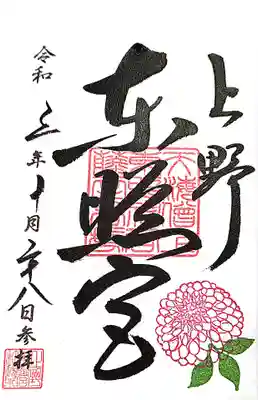 上野
東照宮
令和三年十月二十八日参拝